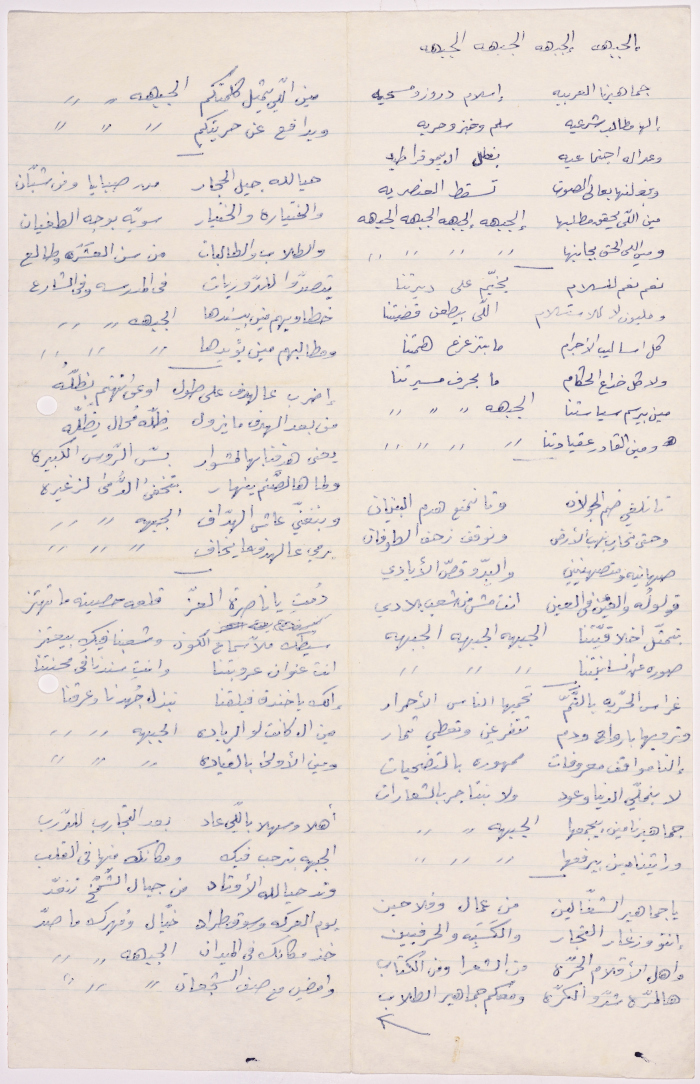 الجبهه الجبهه الجبهه الجبهه
جماهيرنا العربيه إسلام دروز ومسحيه
إلها مطالب شرعيه سلم وخبز وحريه
وعداله اجتماعيه بظل الديموقراطيه
ومنقولها بعالي الصوت تسقط العنصريه
مين اللّي يحقق مطالبها الجبهه الجبهه الجبهه الجبهه
ومين اللي الحق بجانبها // // // //
نعم نعم للسلام يخيّم على ديرتنا
ومليون لا للاستسلام اللّي بيطعن قضيتنا
كل اساليب الأجرام ما بتزعزع همتنا
ولا كل خداع الحكام ما بحرف مسيرتنا
مين بيرسم سياستنا الجبهه // // //
ومين القادر عقيادتنا // // // //
تا نلغي ضم الجولان وتا نمنع هدم البنيان
وحتى نحارب نهب الأرض ونوقف زحف الطوفان
صهيانيه ومتصهينين والبدّو قصّ الأيادي
قولولُه والعين في العين انت مش من شعب بلادي
بتمثّل اخلاقيّتنا الجبهه الجبهه الجبهه
صوره عن انسانيّتنا // // //
غراس الحرّيه بالتمّ تحميها الناس الأحرار
وترويها بارواح ودم تتفرعن وتعطي ثمار
إلنا مواقف معروفات ممهوره بالتضحيات
لا بنملّي الدنيا وعود ولا بنتاجر بالشعارات
جماهيرنا مين بيجمعها الجبهه // //
ورايتنا مين بيرفعها // // //
يا جماهير الشغّالين من عمال وفلاحين
إنتو وزغار التجار والكسَبه والحرفيين
وأهل الأقلام الحرّه من الشعرا ومن الكتّاب
هالمرّه شدّو الكرّه ومعكم جماهير الطلاب
مين اللّي يمثل كلمتكم الجبهه // //
ويدافع عن حريتكم // // //
حيالله جيل الحجار من صبايا ومن شبّان
والختياره والختيار سويّه بوجه الطغيان
والطلاب والطالبات من سن العشَرَه وطالع
يتصدّوا للدّوريات في المدرسه وفي الشارع
خطاويهم مين بيسندها الجبهه // //
ومطالبهم مين يؤيدها // // //
إضرب عالهدف على طول اوعى انتهتم بظلّه
من بعد الهدف ما يزول ظلّه محال يظلّه
يعني هدفنا بهالمشوار بسّ الرّوس الكبيره
ولما هالصّنم ينهار بتختفي الدُّمى الزغيره
وبنغنّي عاش الهدّاف الجبهه // //
يرمي عالهدف ما يخاف // // //
دُمتِ يا ناصرة العزّ قلعه حصينه ما تهتز
سيطك ملا سماع الكون وشعبنا فيكِ بيعتز
انت عنوان عروبتنا وانتِ سندنا في محنتنا
إلك يا خندق فيلقنا نبذل جهدنا وعرقنا
مين ال كانت لو الرياده الجبهه // //
ومين الأولى بالقياده // // //
أهلا وسهلا باللّي عاد بعد التجارب للدّرب
الجبهه بترحب فيك ومكانك منها في القلب
وتد حيالله الأوتاد من جبال الشُّمَّخ تنقدّ
يوم المعركه وسوق طراد خيّال ومُهرك ما صدّ
خذ مكانك في الميدان الجبهه // //
وامضي مع صف الشجعان // // //